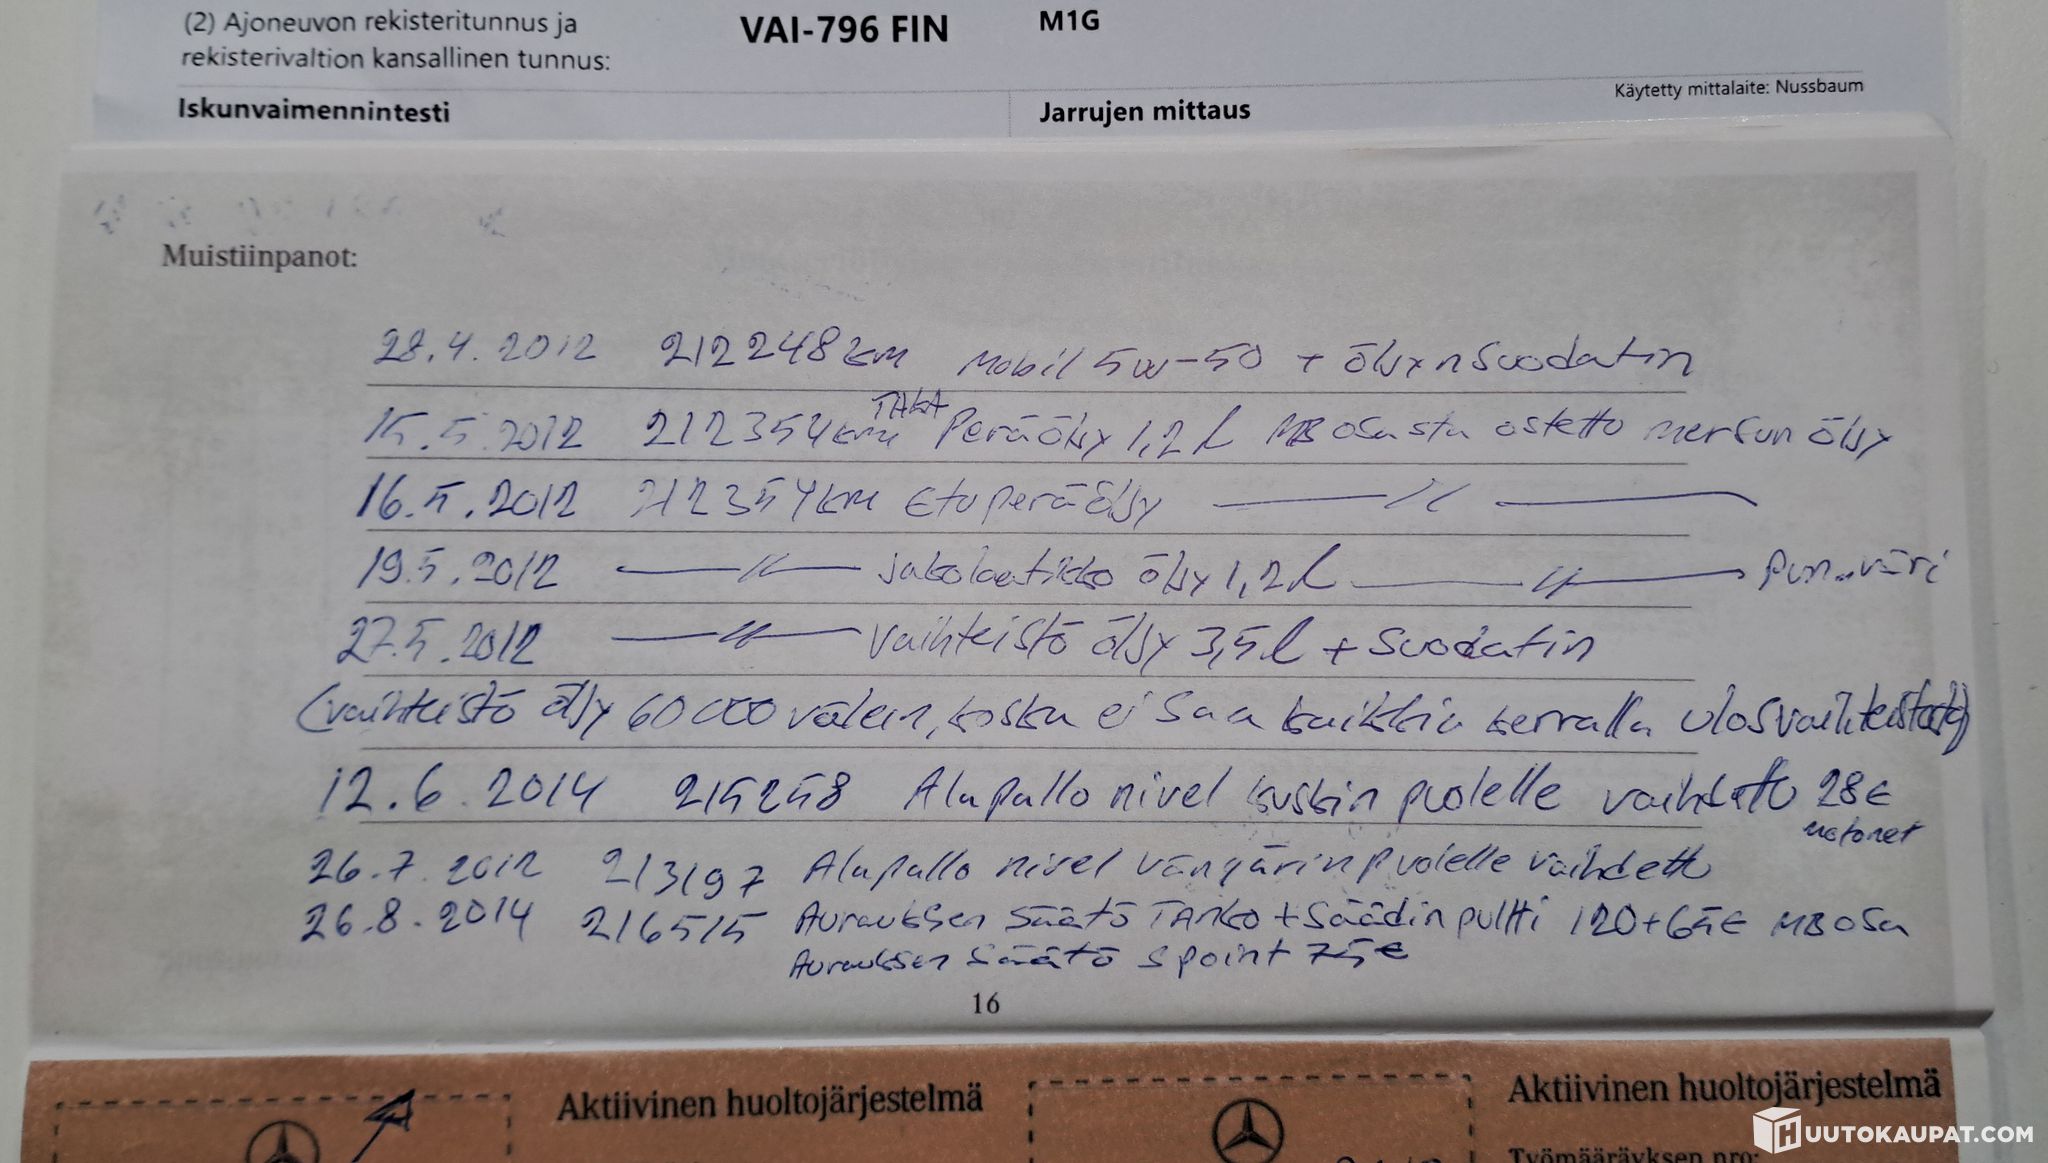 (2) Ajoneuvon rekisteritunnus ja
rekisterivaltion kansallinen tunnus:
VAI-796 FIN
M1G
Käytetty mittalaite: Nussbaum
Iskunvaimennintesti
Jarrujen mittaus
Muistiinpanot:
28.4.2012 212248 km Mobil 5w-50 + öljynsuodatin
15.5.2012 212354 km TAKA Peräöljy 1,2 l MB osasta ostettu mersun öljy
16.5.2012 212354 km Etuperäöljy —〃—
19.5.2012 —〃— jakolaatikko öljy 1,2 l —〃— pun.väri
27.5.2012 —〃— vaihteistö öljy 3,5 l + suodatin
(vaihteistö öljy 60 000 välein, koska ei saa kaikkia kerralla ulos vaihteistosta)
12.6.2014 215258 Alapallo nivel kuskin puolelle vaihdettu 28€
Motonet
26.7.2012 213197 Alapallo nivel vängärin puolelle vaihdettu
26.8.2014 216515 Aurauksen säätö TANKO + säädin pultti 120+65€ MB osa
Aurauksen säätö spoint 75€
16
Aktiivinen huoltojärjestelmä
Aktiivinen huoltojärjestelmä
Työmääräyksen nro:
HUUTOKAUPAT.COM